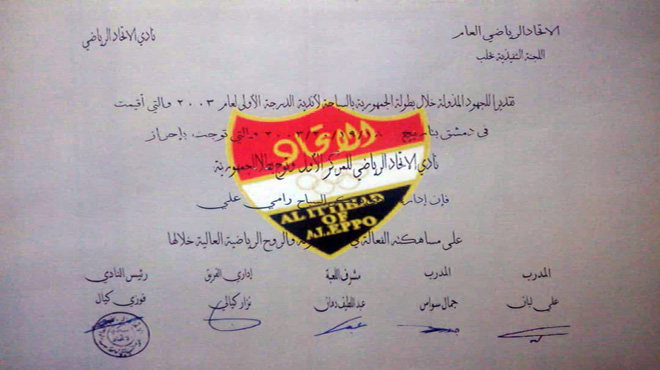 الاتحاد الرياضي العام
نادي الاتحاد الرياضي
اللجنة التنفيذية بحلب
تقديرا للجهود المبذولة خلال بطولة الجمهورية بالسباحة لأندية الدرجة الأولى لعام ٢٠٠٣ والتي أقيمت
في دمشق بتاريخ والتي توجت بإحراز
نادي الاتحاد الرياضي للمركز الأول
فإن إدارة السباح رامي علي
على مساهمته الفعالة في والروح الرياضية العالية خلالها
الاتحاد
AL ITTIHAD
OF
ALEPPO
المدرب
المدرب
مشرف اللعبة
إداري الفريق
رئيس النادي
جمال سواس
نزار كيالي
فوزي كيال